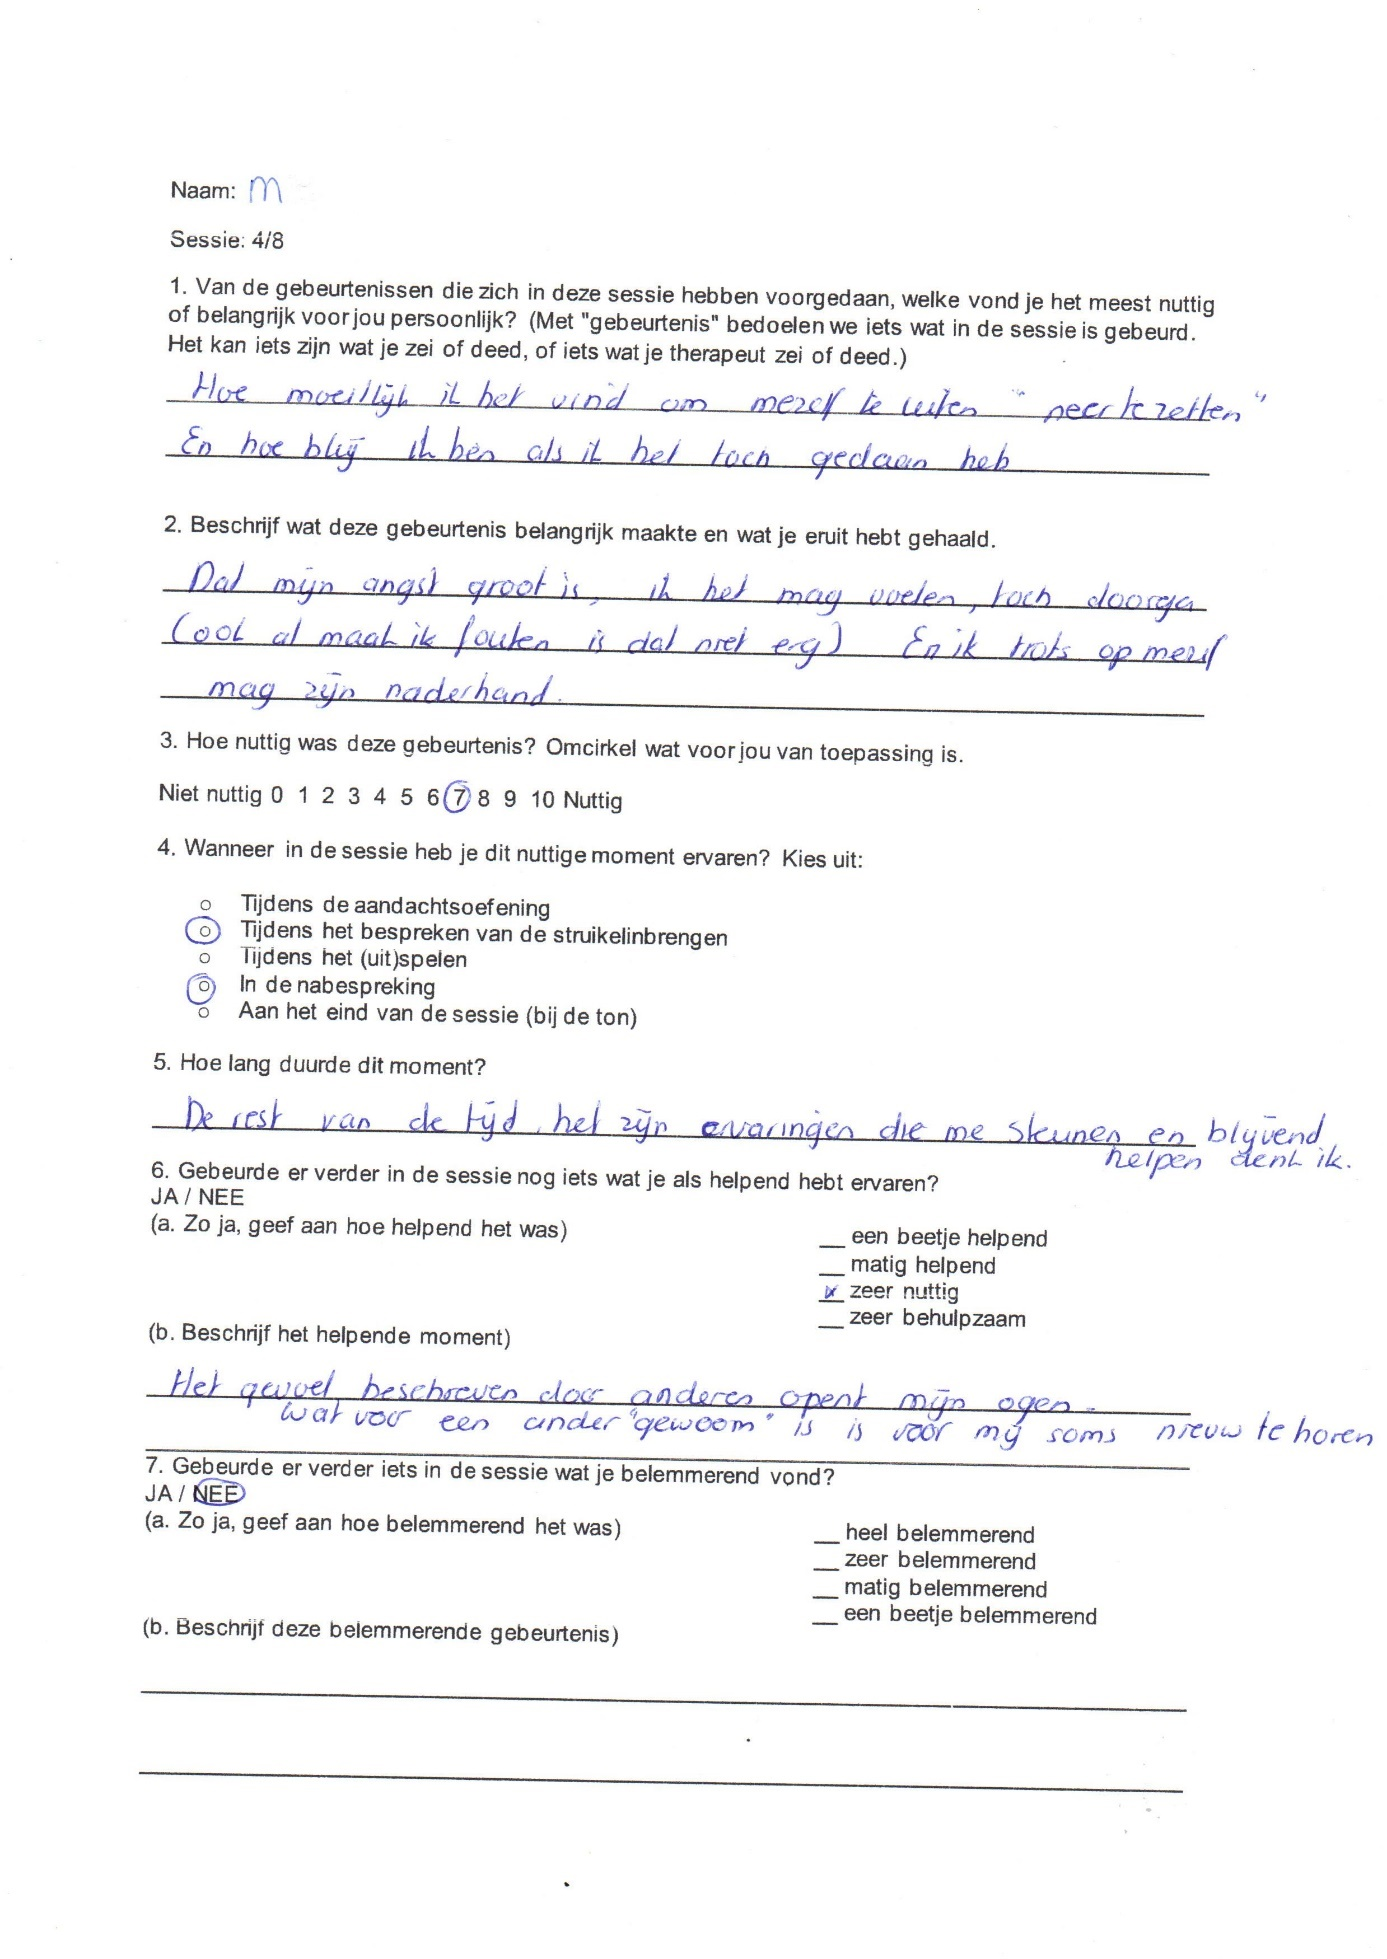 Naam: M
Sessie: 4/8
1. Van de gebeurtenissen die zich in deze sessie hebben voorgedaan, welke vond je het meest nuttig
of belangrijk voor jou persoonlijk? (Met "gebeurtenis" bedoelen we iets wat in de sessie is gebeurd.
Het kan iets zijn wat je zei of deed, of iets wat je therapeut zei of deed.)
Hoe moeilijk ik het vind om mezelf te "neer te zetten"
En hoe blij ik ben als ik het toch gedaan heb
2. Beschrijf wat deze gebeurtenis belangrijk maakte en wat je eruit hebt gehaald.
Dat mijn angst groot is, ik het mag voelen, toch doorga
(ook al maak ik fouten is dat niet erg) En ik trots op mezelf
mag zijn naderhand.
3. Hoe nuttig was deze gebeurtenis? Omcirkel wat voor jou van toepassing is.
Niet nuttig 0 1 2 3 4 5 6 7 8 9 10 Nuttig
4. Wanneer in de sessie heb je dit nuttige moment ervaren? Kies uit:
o Tijdens de aandachtsoefening
o Tijdens het bespreken van de struikelinbrengen
o Tijdens het (uit)spelen
o In de nabespreking
o Aan het eind van de sessie (bij de ton)
5. Hoe lang duurde dit moment?
De rest van de tijd, het zijn ervaringen die me steunen en blijvend
helpen denk ik.
6. Gebeurde er verder in de sessie nog iets wat je als helpend hebt ervaren?
JA / NEE
(a. Zo ja, geef aan hoe helpend het was)
__ een beetje helpend
__ matig helpend
x zeer nuttig
__ zeer behulpzaam
(b. Beschrijf het helpende moment)
Het gevoel beschreven door anderen opent mijn ogen.
wat voor een ander "gewoom" is is voor mij soms nieuw te horen
7. Gebeurde er verder iets in de sessie wat je belemmerend vond?
JA / NEE
(a. Zo ja, geef aan hoe belemmerend het was)
__ heel belemmerend
__ zeer belemmerend
__ matig belemmerend
__ een beetje belemmerend
(b. Beschrijf deze belemmerende gebeurtenis)